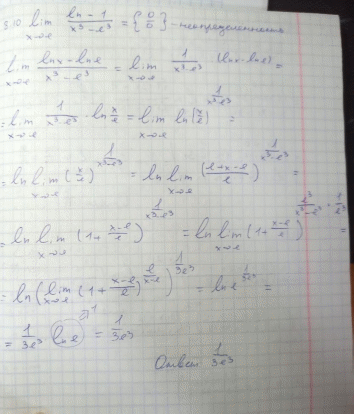 3.10 lim x→e (ln - 1)/(x³-e³) = {0/0} - неопределенность
lim x→e (lnx - lne)/(x³-e³) = lim x→e 1/(x³-e³) (lnx - lne) =
= lim x→e 1/(x³-e³) · ln x/e = lim x→e ln(x/e)^(1/(x³-e³)) =
= ln lim x→e (x/e)^(1/(x³-e³)) = ln lim x→e ((e+x-e)/e)^(1/(x³-e³)) =
= ln lim x→e (1+(x-e)/e)^(1/(x³-e³)) = ln lim x→e (1+(x-e)/e)^(e³/(x³-e³) · 1/e³) =
= ln(lim x→e (1+(x-e)/e)^(e/(x-e)))^(1/3e³) = ln e^(1/3e³) =
= 1/3e³ · lne = 1/3e³
Ответ 1/3e³